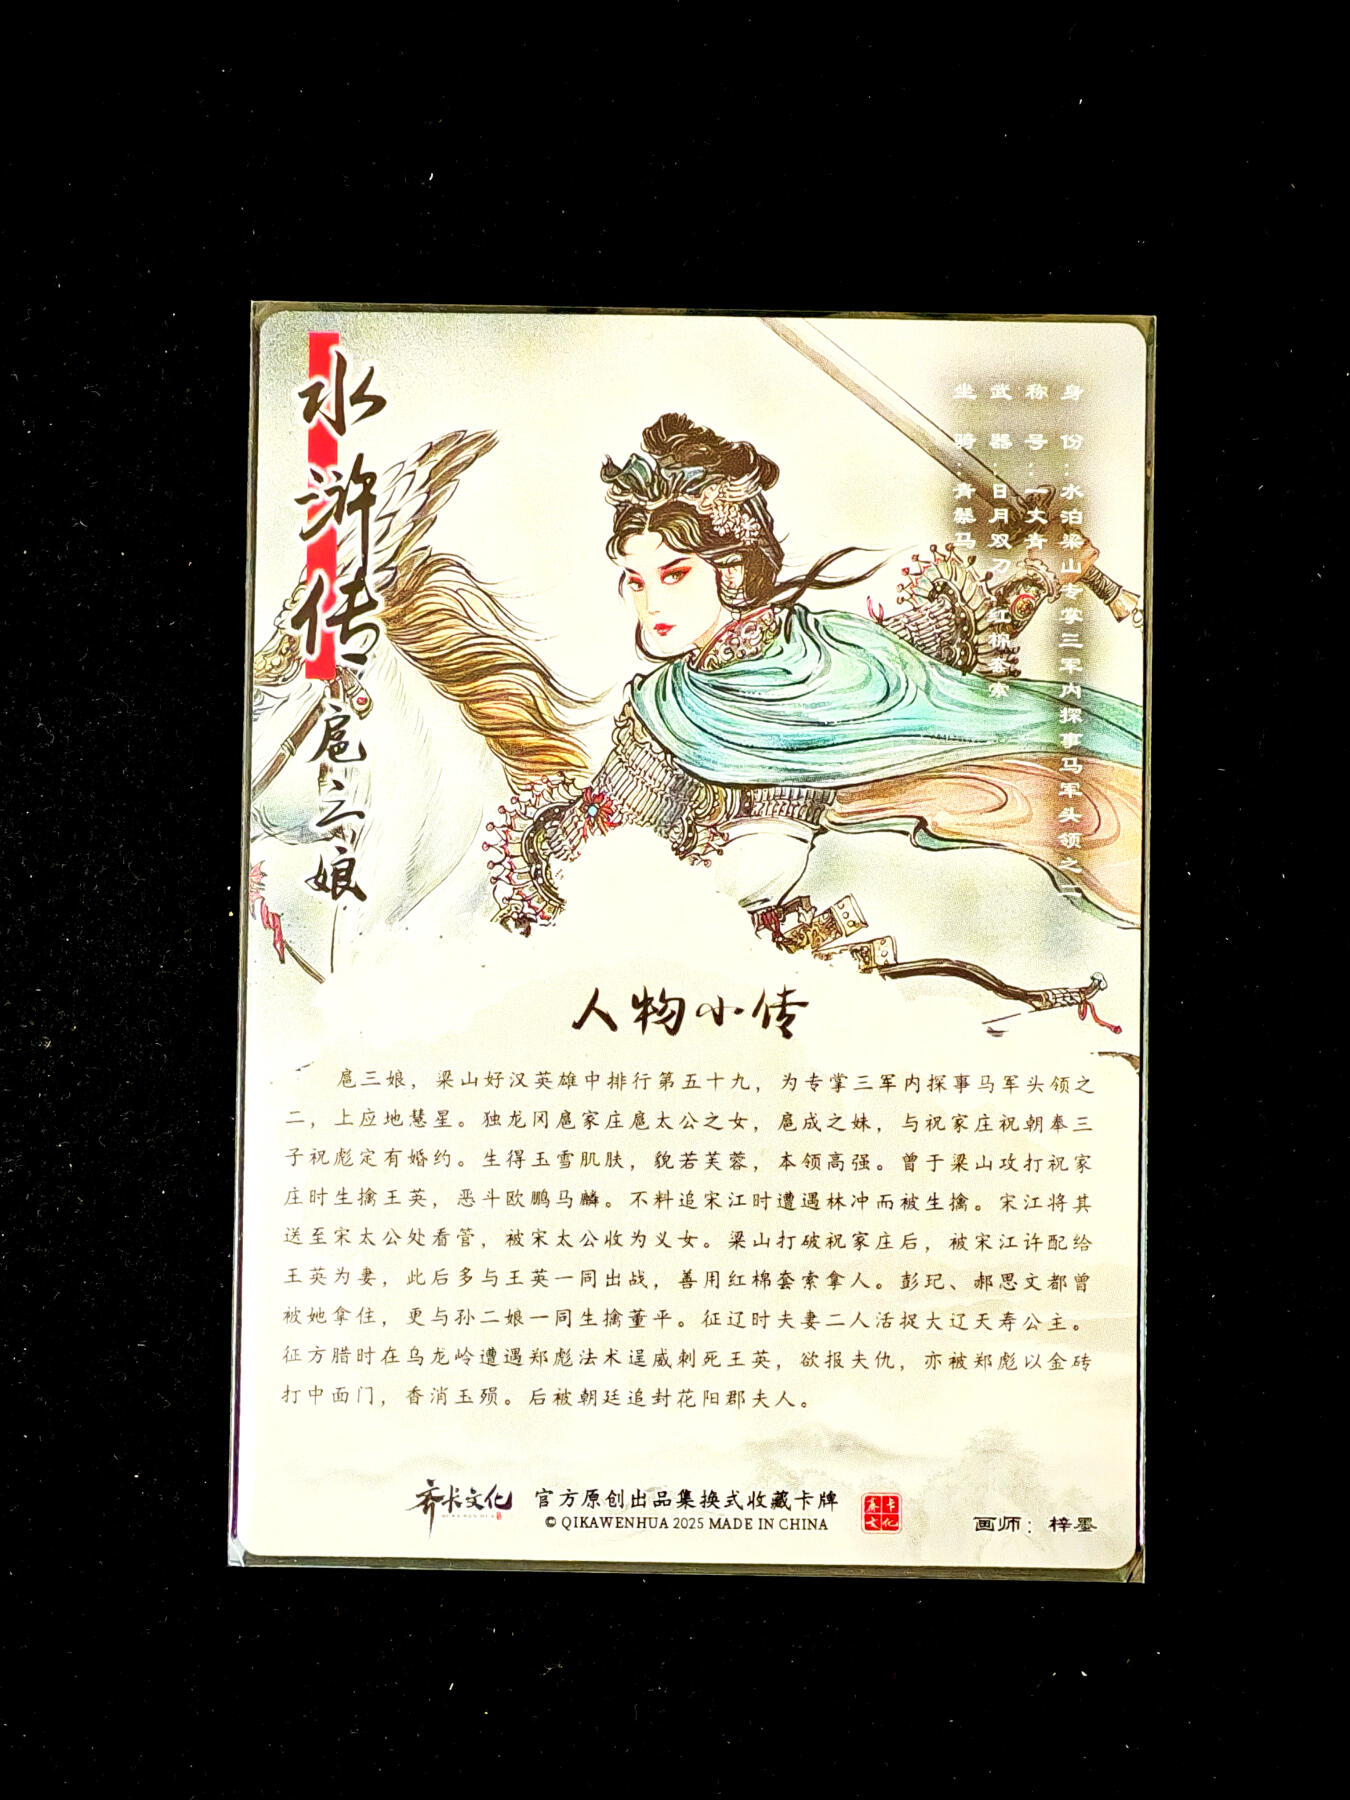 水浒传
扈三娘
身份：水泊梁山专掌三军内探事马军头领之二
称号：一丈青
武器：日月双刀 红棉套索
坐骑：青鬃马
人物小传
扈三娘，梁山好汉英雄中排行第五十九，为专掌三军内探事马军头领之
二，上应地慧星。独龙冈扈家庄扈太公之女，扈成之妹，与祝家庄祝朝奉三
子祝彪定有婚约。生得玉雪肌肤，貌若芙蓉，本领高强。曾于梁山攻打祝家
庄时生擒王英，恶斗欧鹏马麟。不料追宋江时遭遇林冲而被生擒。宋江将其
送至宋太公处看管，被宋太公收为义女。梁山打破祝家庄后，被宋江许配给
王英为妻，此后多与王英一同出战，善用红棉套索拿人。彭玘、郝思文都曾
被她拿住，更与孙二娘一同生擒董平。征辽时夫妻二人活捉大辽天寿公主。
征方腊时在乌龙岭遭遇郑彪法术逞威刺死王英，欲报夫仇，亦被郑彪以金砖
打中面门，香消玉殒。后被朝廷追封花阳郡夫人。
齐卡文化
官方原创出品集换式收藏卡牌
© QIKAWENHUA 2025 MADE IN CHINA
齐卡文化
画师：梓墨